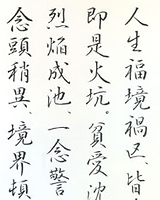 人生福境禍区、皆
即是火坑。貪愛沈
烈焔成池、一念警
念頭稍異、境界頓